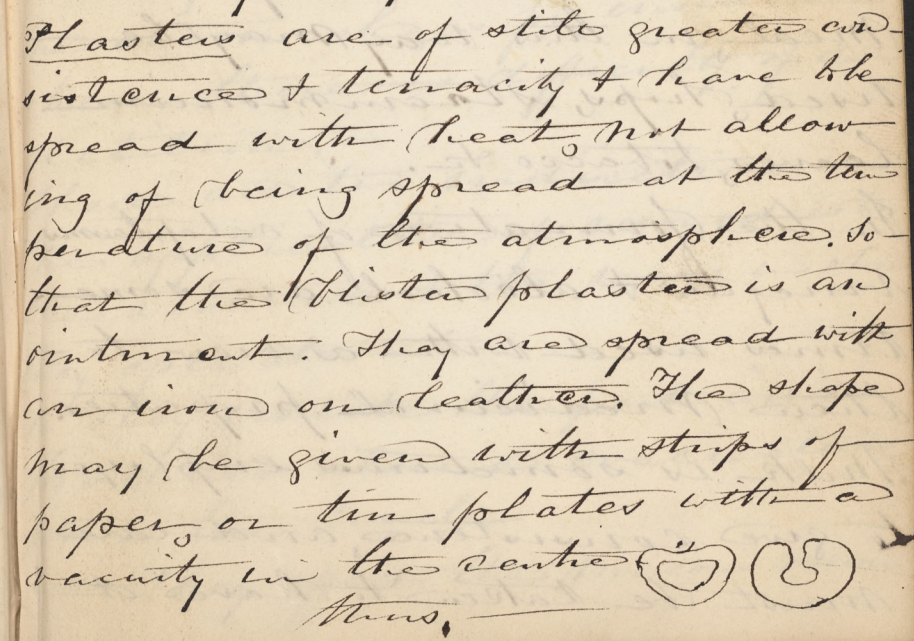 Plasters are of still greater con-
sistence & tenacity & have to be
spread with heat, not allow
ing of being spread at the tem
perature of the atmosphere. So
that the blister plaster is an
ointment. They are spread with
an iron on leather. The shape
may be given with strips of
paper, or tin plates with a
vacuity in the centre
thus.